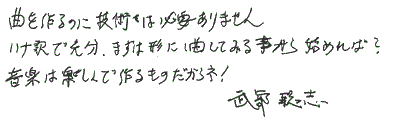 曲を作るのに技術とは必要ありません
ハナ歌で充分、まずは形に曲してみる事から始めれば?
音楽は楽しんで作るものだからネ!
武部聡志